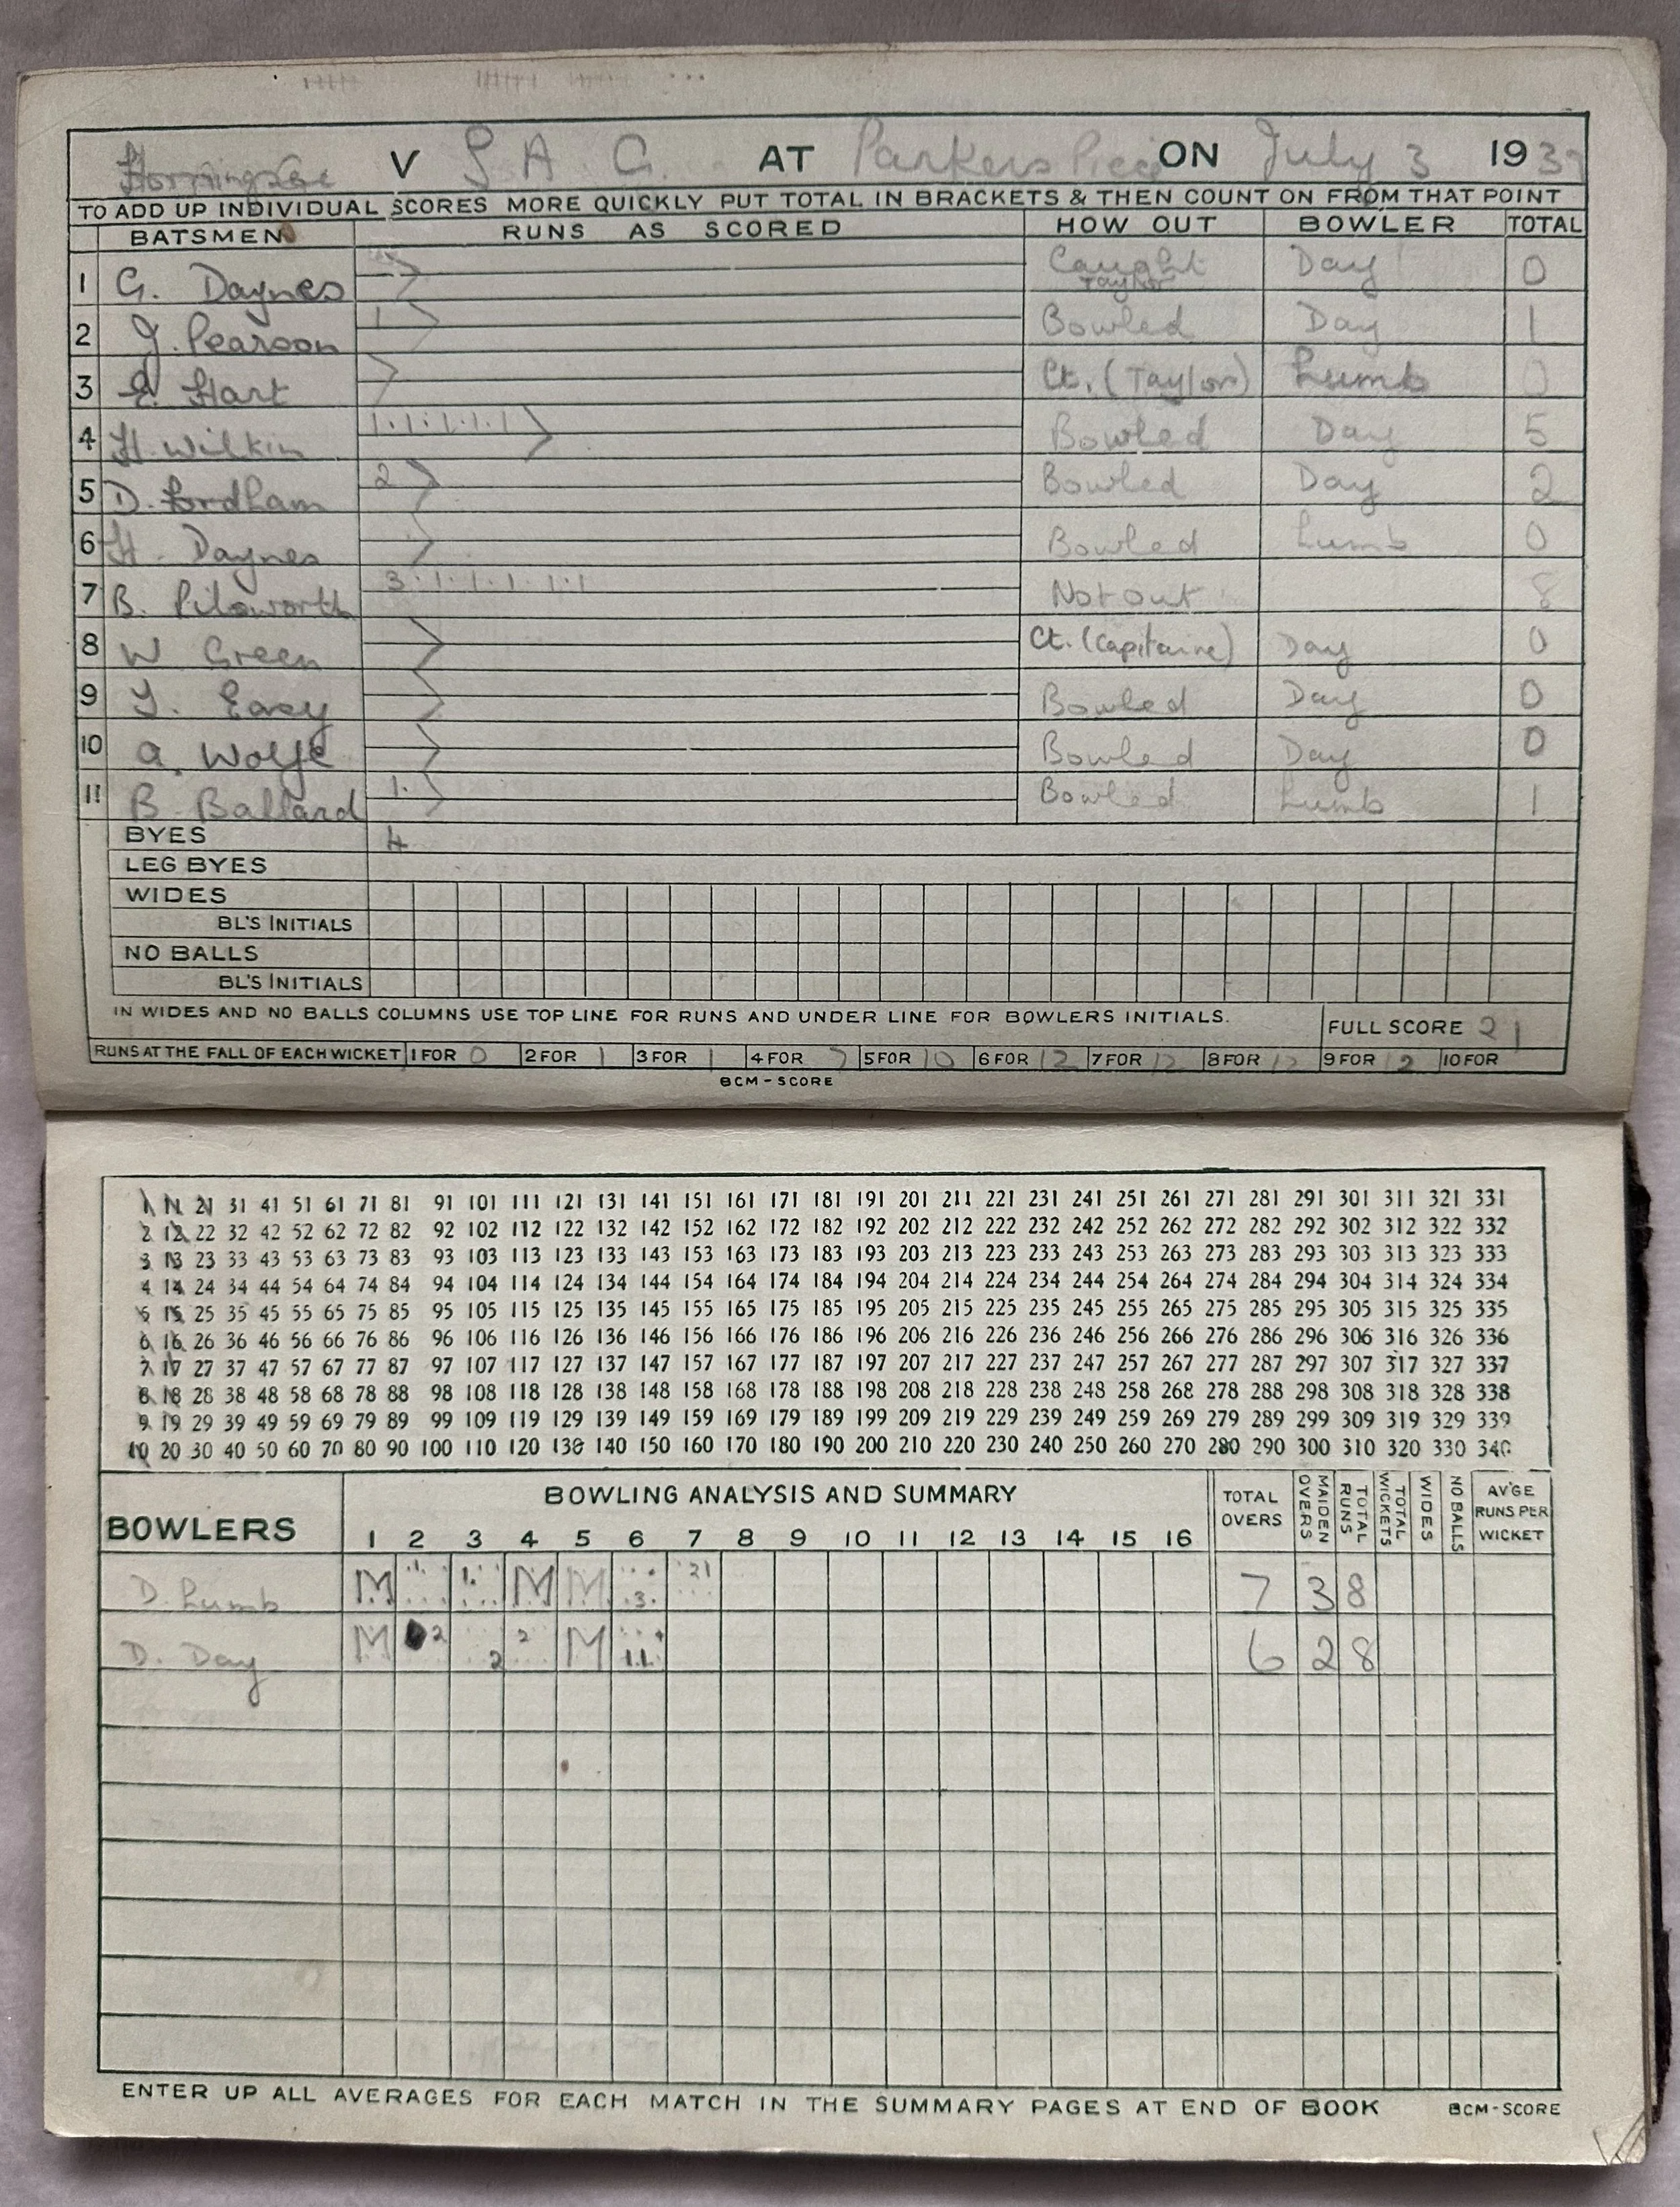 Horningsea V S A G. AT Parkers Piece ON July 3 1937
TO ADD UP INDIVIDUAL SCORES MORE QUICKLY PUT TOTAL IN BRACKETS & THEN COUNT ON FROM THAT POINT
BATSMEN RUNS AS SCORED HOW OUT BOWLER TOTAL
1 G. Daynes Caught Taylor Day 0
2 J. Pearson 1 Bowled Day 1
3 E. Hart Ct. (Taylor) Lumb 0
4 H. Wilkin 1.1.1.1.1 Bowled Day 5
5 D. Fordham 2 Bowled Day 2
6 H. Daynes Bowled Lumb 0
7 B. Pilsworth 3.1.1.1.1.1 Not out 8
8 W Green Ct. (Capitaine) Day 0
9 J. Easy Bowled Day 0
10 A. Wolfe Bowled Day 0
11 B. Ballard 1. Bowled Lumb 1
BYES 4
LEG BYES
WIDES
BL'S INITIALS
NO BALLS
BL'S INITIALS
IN WIDES AND NO BALLS COLUMNS USE TOP LINE FOR RUNS AND UNDER LINE FOR BOWLERS INITIALS. FULL SCORE 21
RUNS AT THE FALL OF EACH WICKET 1 FOR 0 2 FOR 1 3 FOR 1 4 FOR 7 5 FOR 10 6 FOR 12 7 FOR 12 8 FOR 12 9 FOR 12 10 FOR
BCM-SCORE
1 11 21 31 41 51 61 71 81 91 101 111 121 131 141 151 161 171 181 191 201 211 221 231 241 251 261 271 281 291 301 311 321 331
2 12 22 32 42 52 62 72 82 92 102 112 122 132 142 152 162 172 182 192 202 212 222 232 242 252 262 272 282 292 302 312 322 332
3 13 23 33 43 53 63 73 83 93 103 113 123 133 143 153 163 173 183 193 203 213 223 233 243 253 263 273 283 293 303 313 323 333
4 14 24 34 44 54 64 74 84 94 104 114 124 134 144 154 164 174 184 194 204 214 224 234 244 254 264 274 284 294 304 314 324 334
5 15 25 35 45 55 65 75 85 95 105 115 125 135 145 155 165 175 185 195 205 215 225 235 245 255 265 275 285 295 305 315 325 335
6 16 26 36 46 56 66 76 86 96 106 116 126 136 146 156 166 176 186 196 206 216 226 236 246 256 266 276 286 296 306 316 326 336
7 17 27 37 47 57 67 77 87 97 107 117 127 137 147 157 167 177 187 197 207 217 227 237 247 257 267 277 287 297 307 317 327 337
8 18 28 38 48 58 68 78 88 98 108 118 128 138 148 158 168 178 188 198 208 218 228 238 248 258 268 278 288 298 308 318 328 338
9 19 29 39 49 59 69 79 89 99 109 119 129 139 149 159 169 179 189 199 209 219 229 239 249 259 269 279 289 299 309 319 329 339
10 20 30 40 50 60 70 80 90 100 110 120 130 140 150 160 170 180 190 200 210 220 230 240 250 260 270 280 290 300 310 320 330 340
BOWLERS BOWLING ANALYSIS AND SUMMARY TOTAL OVERS MAIDEN OVERS TOTAL RUNS TOTAL WICKETS WIDES NO BALLS AV'GE RUNS PER WICKET
1 2 3 4 5 6 7 8 9 10 11 12 13 14 15 16
D. Lumb M 1. M M 3. 21 7 3 8
D. Day M 2 2 2 M 1.1. 6 2 8
ENTER UP ALL AVERAGES FOR EACH MATCH IN THE SUMMARY PAGES AT END OF BOOK BCM-SCORE